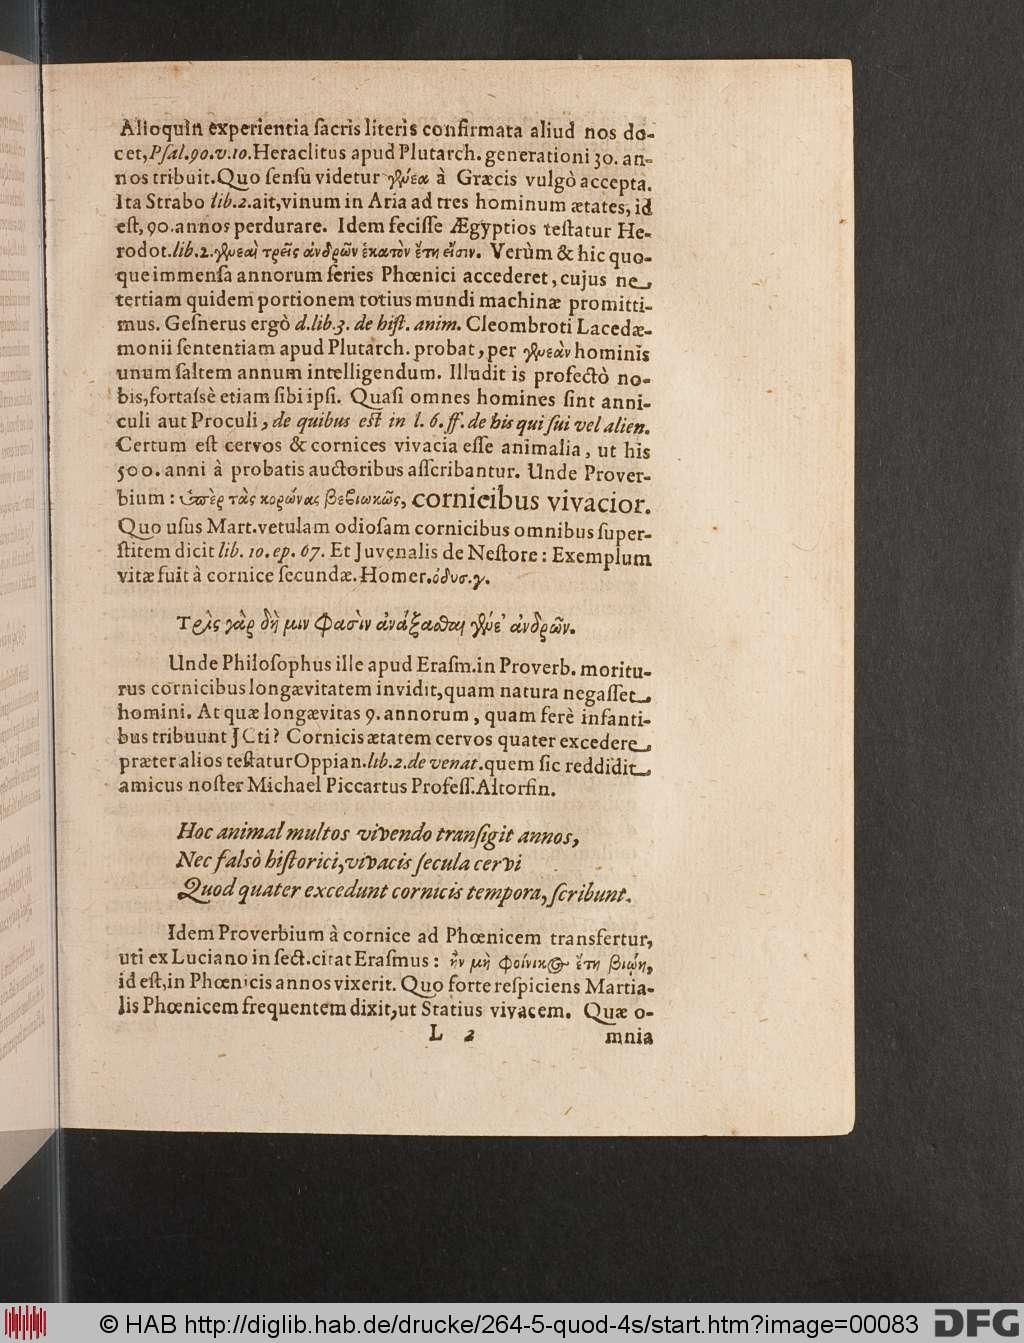 Alioquin experientia ſacris literis confirmata aliud nos do-
cet, Pſal. 90. v. 10. Heraclitus apud Plutarch. generationi 30. an-
nos tribuit. Quo ſenſu videtur γενέα à Græcis vulgò accepta.
Ita Strabo lib. 2. ait, vinum in Aria ad tres hominum ætates, id
eſt, 90. annos perdurare. Idem feciſſe Ægyptios teſtatur He-
rodot. lib. 2. γενεαὶ τρεῖς ἀνδρῶν ἑκατὸν ἔτη εἴσιν. Verùm & hic quo-
que immenſa annorum ſeries Phœnici accederet, cujus ne
tertiam quidem portionem totius mundi machinæ promitti-
mus. Geſnerus ergò d. lib. 3. de hiſt. anim. Cleombroti Lacedæ-
monii ſententiam apud Plutarch. probat, per γενεὰν hominis
unum ſaltem annum intelligendum. Illudit is profectò no-
bis, fortaſsè etiam ſibi ipſi. Quaſi omnes homines ſint anni-
culi aut Proculi, de quibus eſt in l. 6. ff. de his qui ſui vel alien.
Certum eſt cervos & cornices vivacia eſſe animalia, ut his
500. anni à probatis auctoribus aſſcribantur. Unde Prover-
bium: ὑπὲρ τὰς κορώνας βεβιωκῶς, cornicibus vivacior.
Quo uſus Mart. vetulam odioſam cornicibus omnibus ſuper-
ſtitem dicit lib. 10. ep. 67. Et Juvenalis de Neſtore: Exemplum
vitæ fuit à cornice ſecundæ. Homer. ὀδυσ. γ.
Τρὶς γὰρ δή μιν φασὶν ἀνάξασθαι γένε' ἀνδρῶν.
Unde Philoſophus ille apud Eraſm. in Proverb. moritu-
rus cornicibus longævitatem invidit, quam natura negaſſet
homini. At quæ longævitas 9. annorum, quam ferè infanti-
bus tribuunt JCti? Cornicis ætatem cervos quater excedere
præter alios teſtatur Oppian. lib. 2. de venat. quem ſic reddidit
amicus noſter Michael Piccartus Profeſſ. Altorfin.
Hoc animal multos vivendo tranſigit annos,
Nec falsò hiſtorici, vivacis ſecula cervi
Quod quater excedunt cornicis tempora, ſcribunt.
Idem Proverbium à cornice ad Phœnicem transfertur,
uti ex Luciano in ſect. citat Eraſmus: ἢν μὴ φοίνικος ἔτη βιώῃ,
id eſt, in Phœnicis annos vixerit. Quo forte reſpiciens Martia-
lis Phœnicem frequentem dixit, ut Statius vivacem. Quæ o-
L 2 mnia
© HAB http://diglib.hab.de/drucke/264-5-quod-4s/start.htm?image=00083 DFG